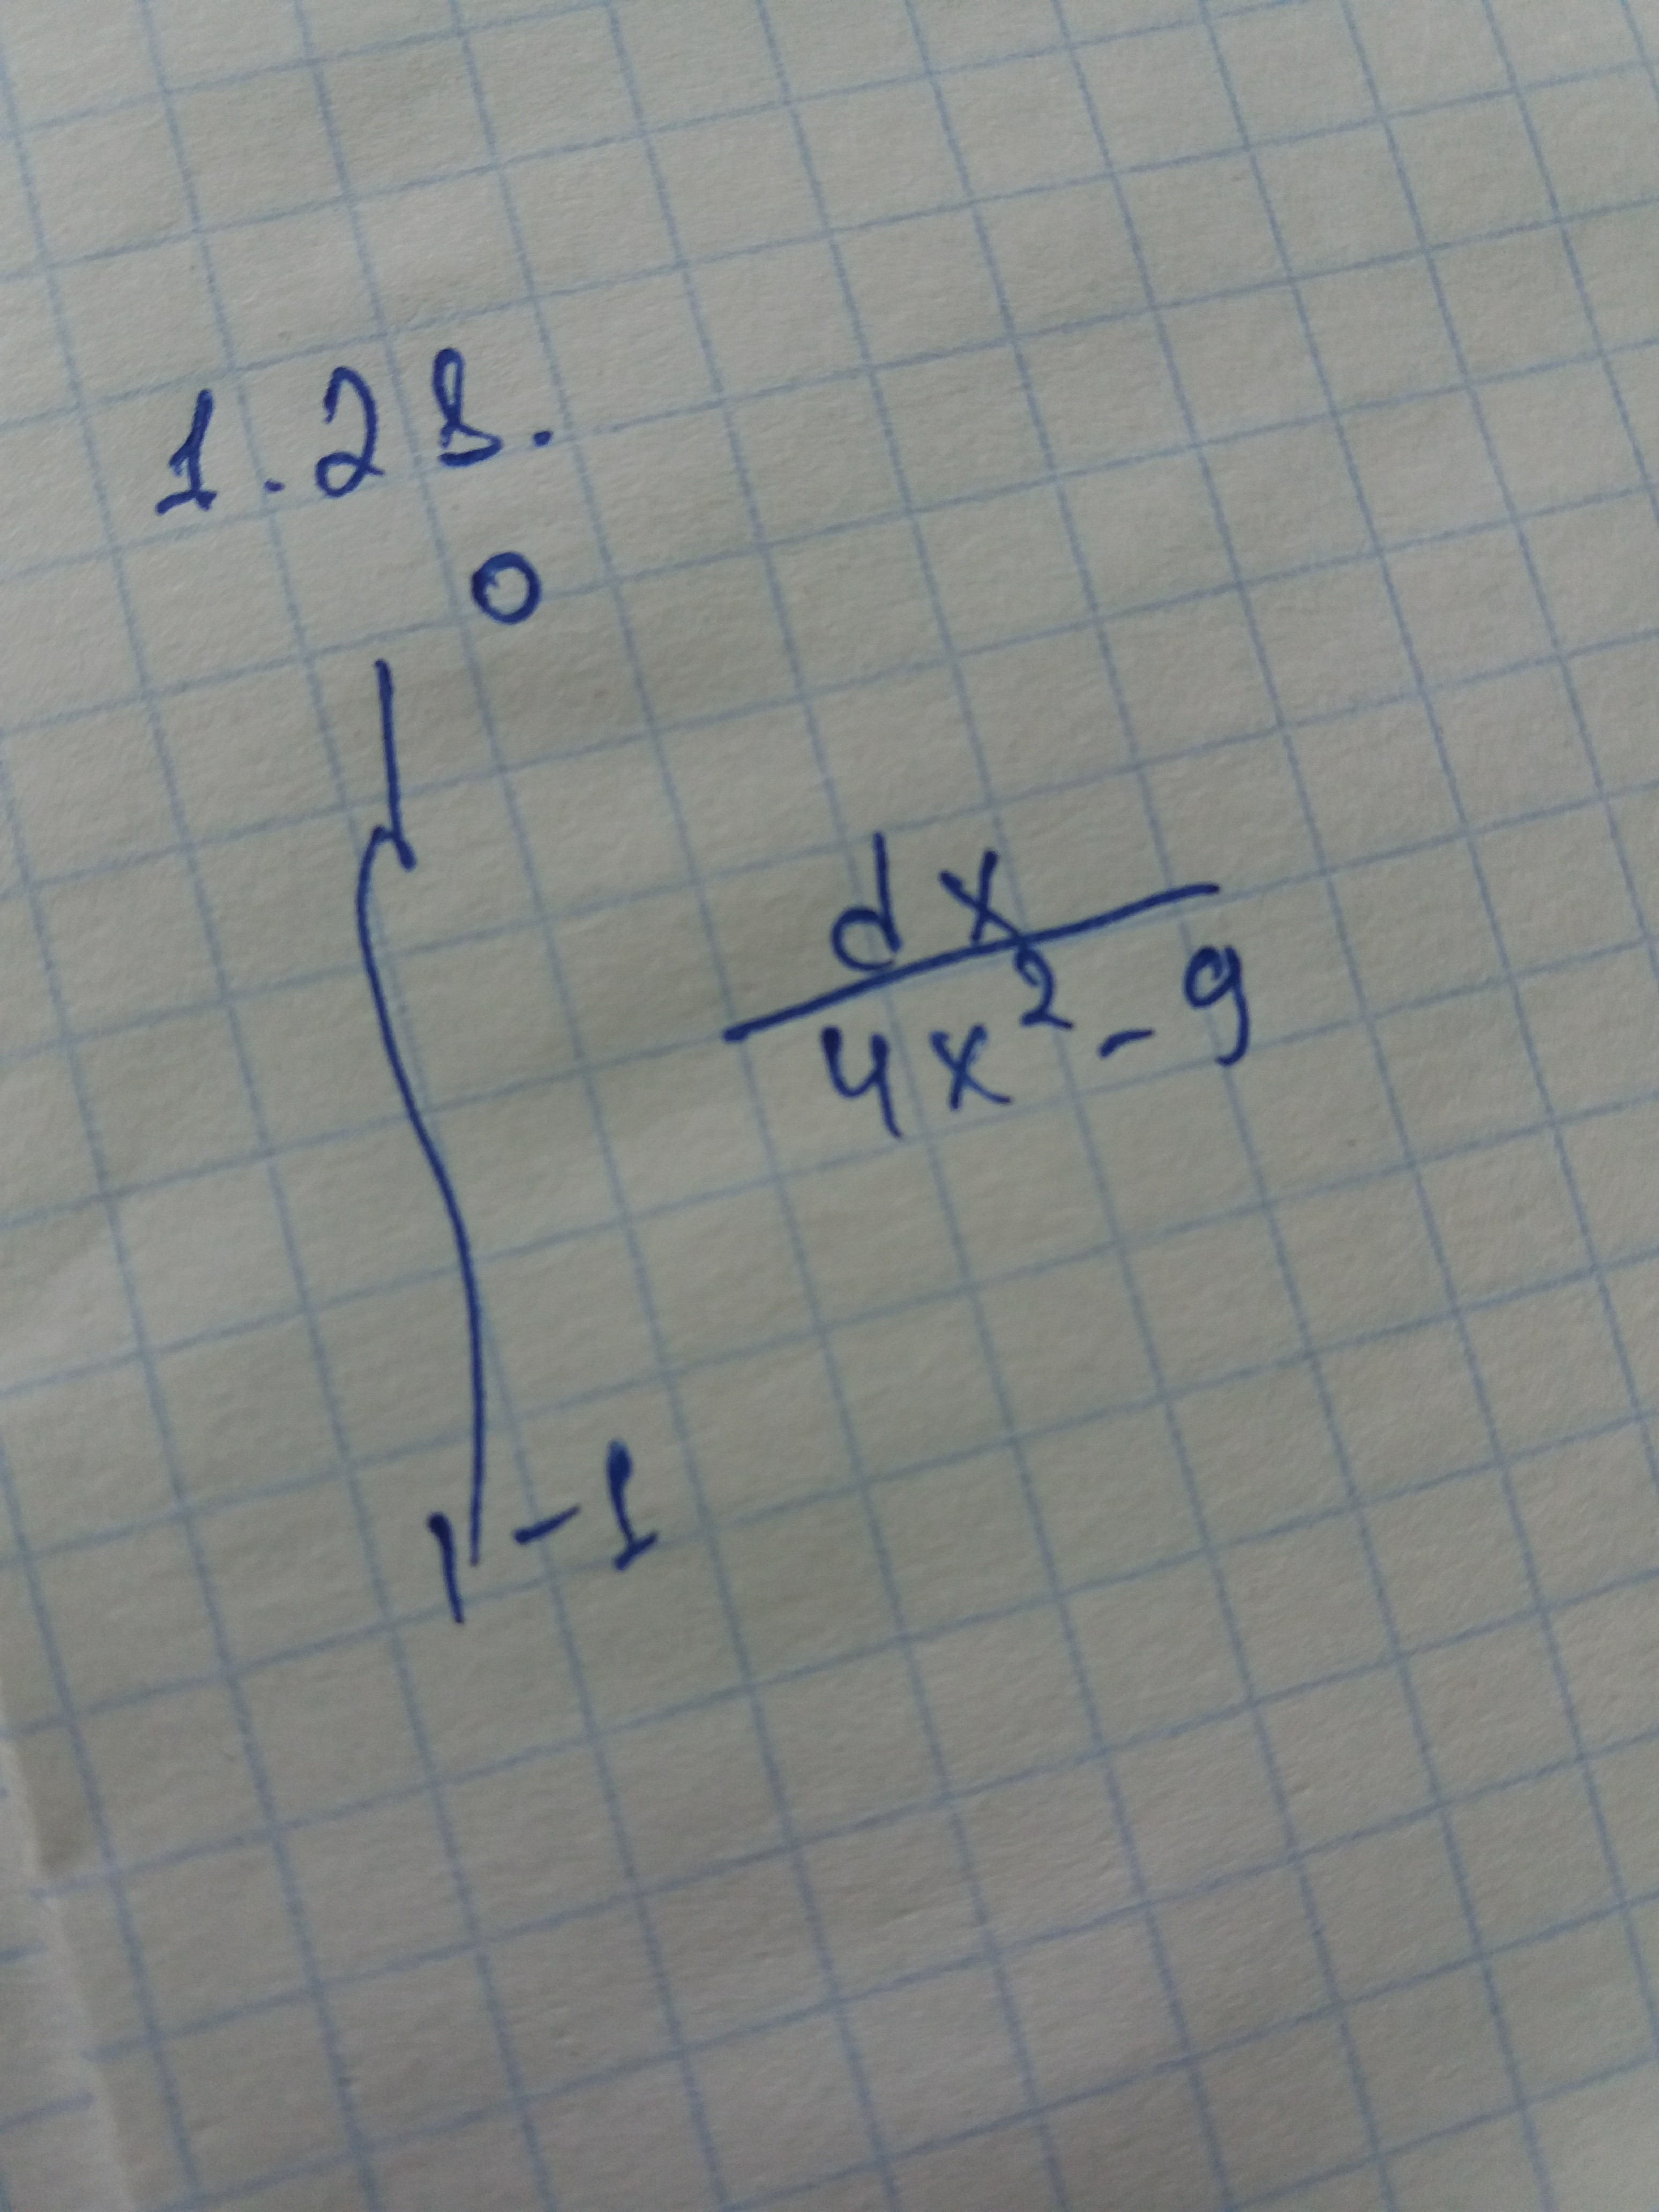 1.28.
0
∫
dx
4x² - 9
-1